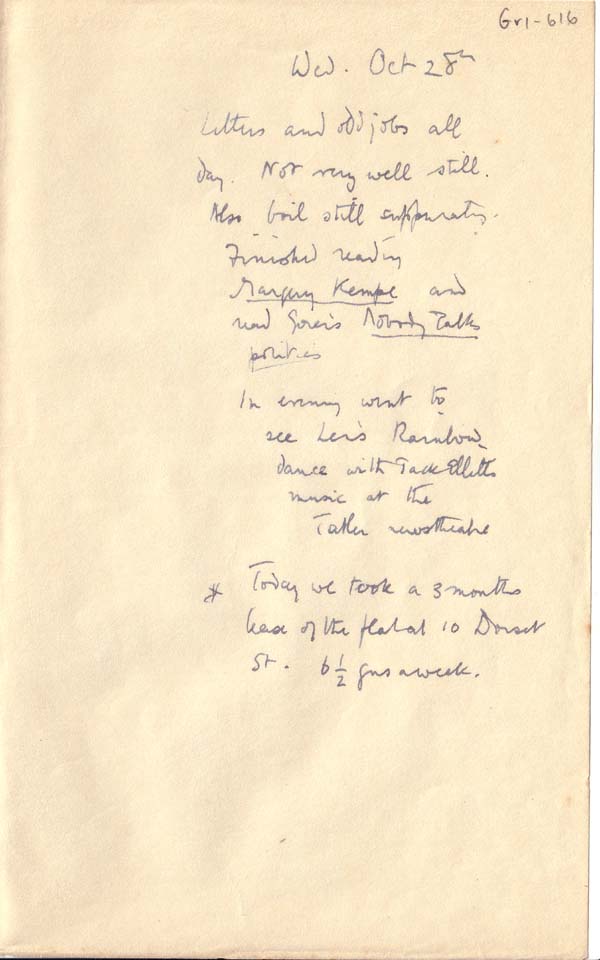 Gr1-616
Wed. Oct 28th
Letters and odd jobs all
day. Not very well still.
Also boil still suppurating.
Finished reading
Margery Kempe and
read Gorer's Nobody Talks
politics
In evening went to
see Len's Rainbow
dance with Jack Ellitts
music at the
Tatler newstheatre
* Today we took a 3 months
lease of the flat at 10 Dorset
St. 6 1/2 gns a week.